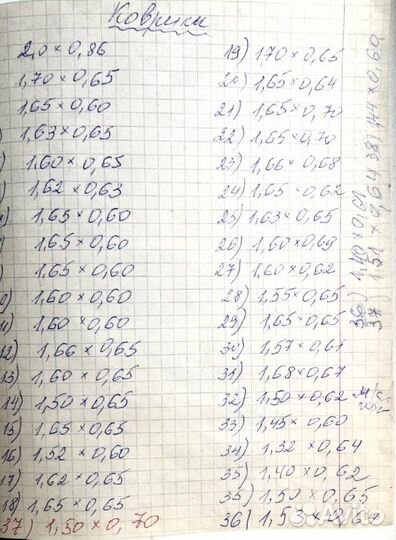 Коврики
2,0 × 0,86
1,70 × 0,65
1,65 × 0,60
1,63 × 0,65
1,60 × 0,65
1,62 × 0,63
1,65 × 0,60
1,65 × 0,60
1,65 × 0,60
1,60 × 0,60
1,60 × 0,60
12) 1,66 × 0,65
13) 1,60 × 0,65
14) 1,50 × 0,65
15) 1,65 × 0,65
16) 1,52 × 0,60
17) 1,62 × 0,65
18) 1,65 × 0,65
37) 1,50 × 0,70
19) 1,70 × 0,65
20) 1,65 × 0,64
21) 1,65 × 0,70
22) 1,65 × 0,70
23) 1,66 × 0,68
24) 1,65 × 0,62
25) 1,63 × 0,65
26) 1,60 × 0,63
27) 1,60 × 0,62
28) 1,55 × 0,65
29) 1,65 × 0,65
30) 1,57 × 0,61
31) 1,68 × 0,67
32) 1,50 × 0,62
33) 1,45 × 0,60
34) 1,32 × 0,64
35) 1,40 × 0,62
35) 1,50 × 0,65
36) 1,53 × 0,60
36) 1,40 × 0,61
37) 1,51 × 0,64 38) 1,44 × 0,60
Avito